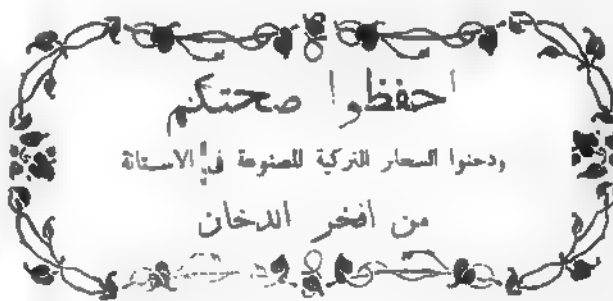 احفظوا صحتكم
ودخنوا السيجار التركية المصنوعة في الاستانة
من افخر الدخان